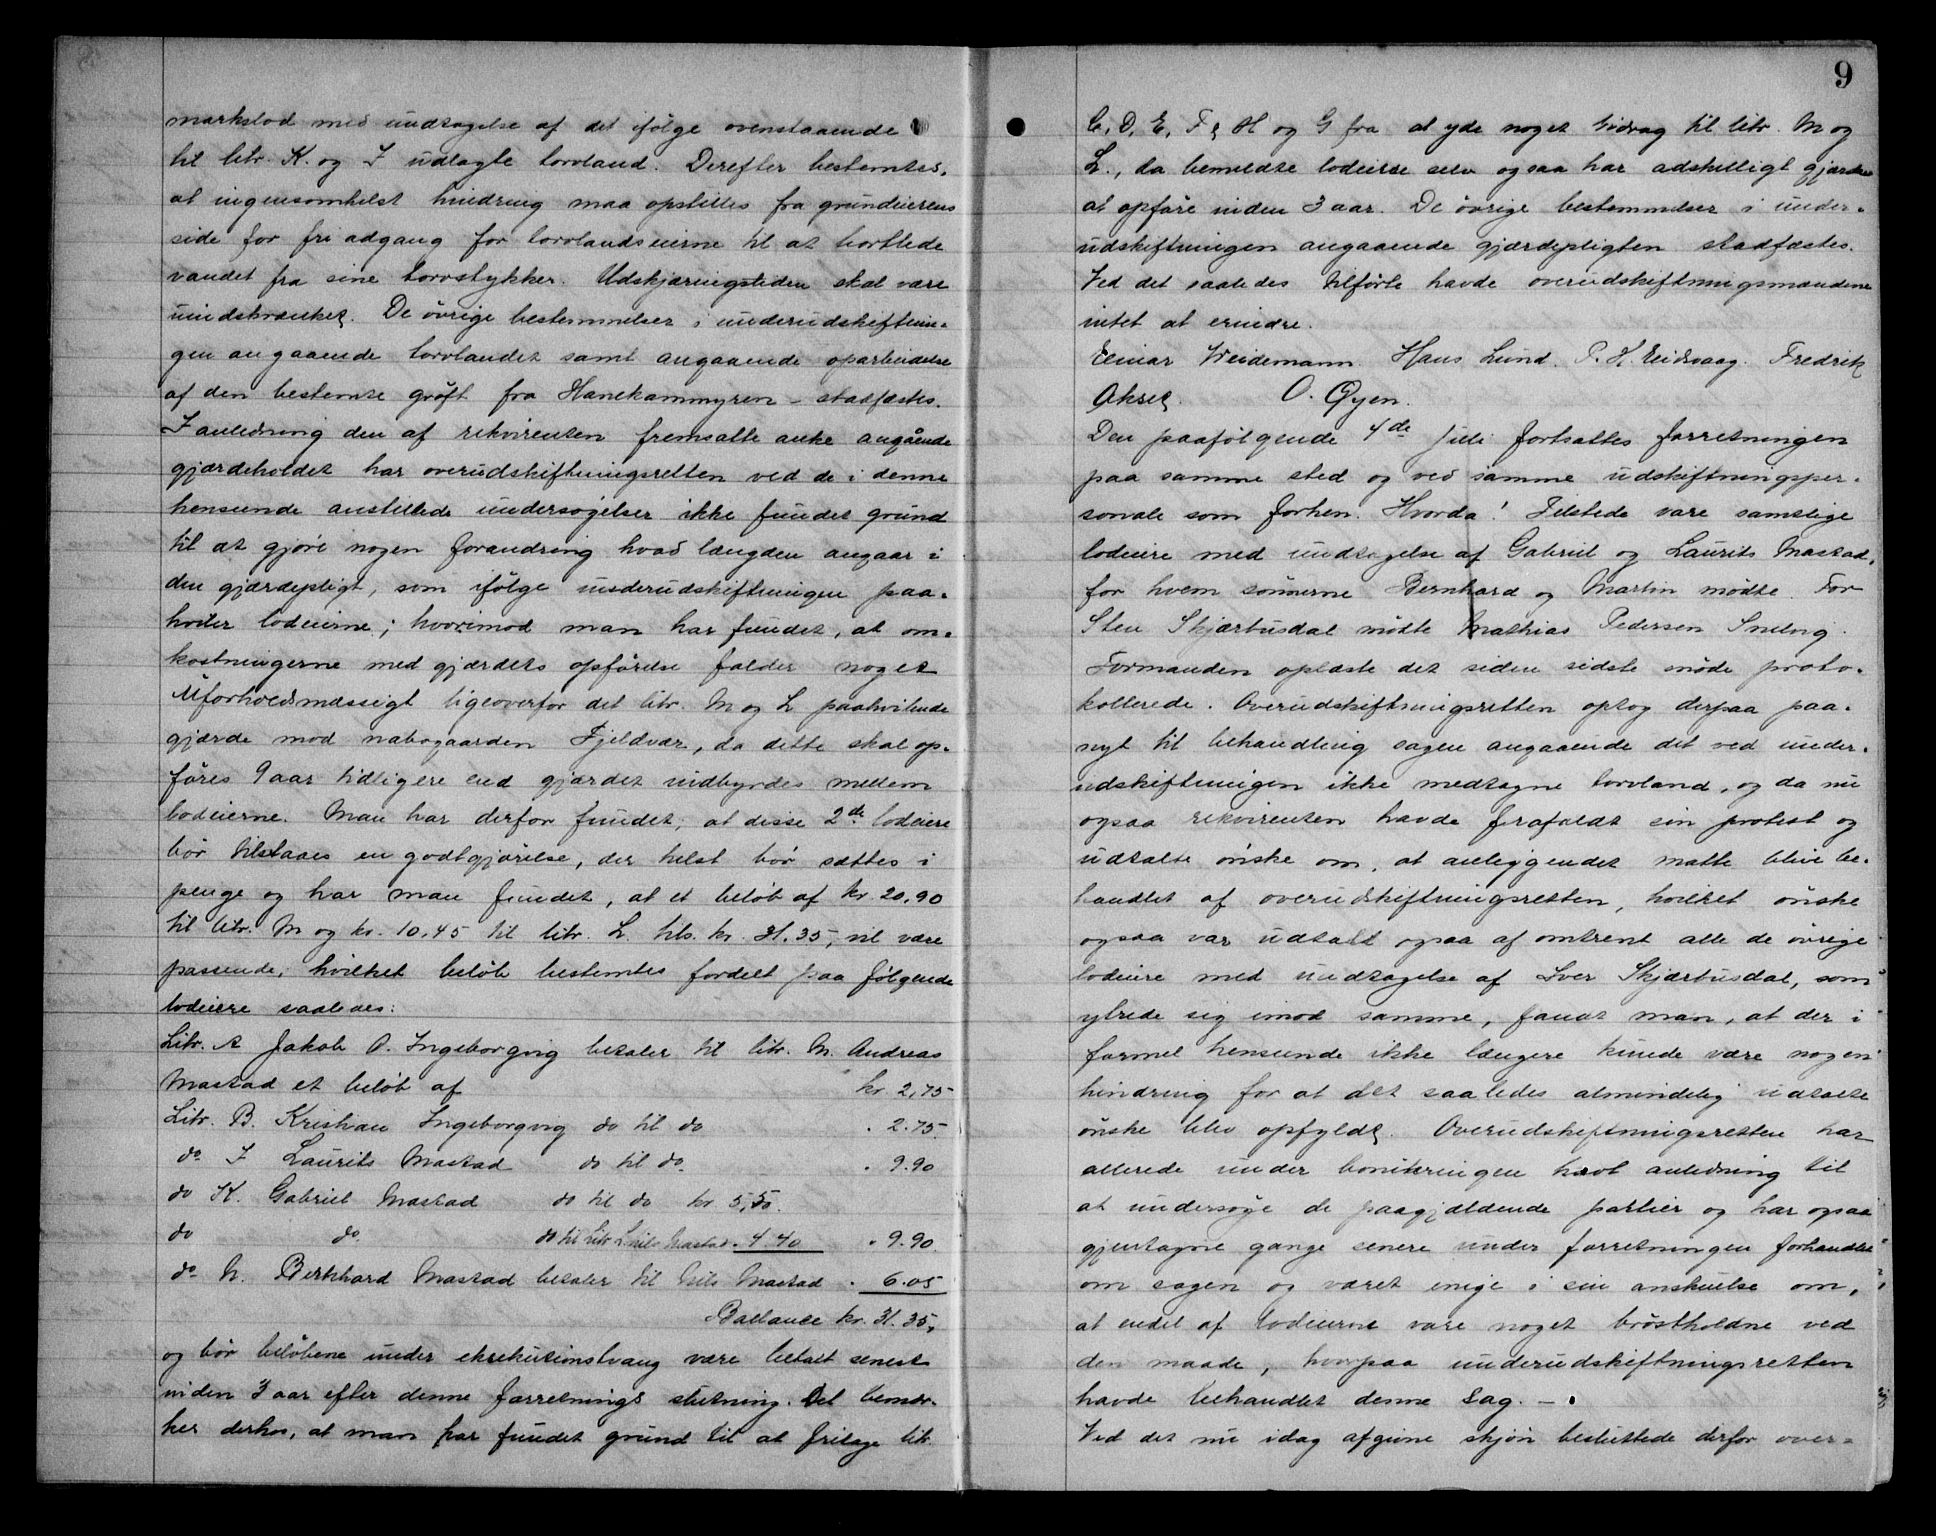 markslod med undtagelse af det ifølge ovenstaaende
til litr. K. og I udlagte torvland. Derefter bestemtes,
at ingensomhelst hindring maa opstilles fra grundeierens
side for fri adgang for torvlandseierne til at bortlede
vandet fra sine torvstykker. Udskjæringstiden skal være
uindskrænket. De øvrige bestemmelser i underudskiftnin-
gen angaaende torvlandet samt angaaende oparbeidelse
af den bestemte grøft fra Hanekammyren – stadfæstes.
I anledning den af rekvirenten fremsatte anke angående
gjærdeholdet har overudskiftningsretten ved de i denne
henseende anstillede undersøgelser ikke fundet grund
til at gjøre nogen forandring hvad længden angaar i
den gjærdepligt, som ifølge underudskiftningen paa-
hviler lodeierne; hvorimod man har fundet, at om-
kostningerne med gjærdets opførelse falder noget
uforholdsmæssigt ligeoverfor det litr. M og L paahvilende
gjærde mod nabogaarden Fjeldvær, da dette skal op-
føres 9 aar tidligere end gjærdet indbyrdes mellem
lodeierne. Man har derfor fundet, at disse 2de lodeiere
bør tilstaaes en godtgjørelse, der helst bør sættes i
penge og har man fundet, at et beløb af kr. 20.90
til litr. M og kr. 10.45 til litr. L. tils. kr. 31.35, vil være
passende, hvilket beløb bestemtes fordelt paa følgende
lodeiere saaledes:
Litr. A Jakob O. Ingeborgvig betaler til litr. M. Andreas
Mastad et beløb af kr. 2,75
Litr. B. Kristian Ingeborgvig do til do " 2.75.
do I Laurits Mastad do til do " 9.90
do K. Gabriel Mastad do til do kr. 5,50.
do do do til litr L. Nils Mastad " 4.40 " 9.90
do N. Bernhard Mastad betaler til Nils Mastad " 6.05
Ballance kr. 31.35,
og bør beløbene under eksekutionstvang være betalt senest
inden 3 aar efter denne forretnings slutning. Det bemær-
kes derhos, at man har fundet grund til at fritage litr.
9
C, D, E, F, H og G fra at yde noget bidrag til litr. M og
L., da bemeldte lodeiere selv ogsaa har adskilligt gjærde
at opføre inden 3 aar. De øvrige bestemmelser i under-
udskiftningen angaaende gjærdepligten stadfæstes.
Ved det saaledes tilførte havde overudskiftningsmændene
intet at erindre.
Einar Weidemann. Hans Lund. P. H. Eidsvaag. Fredrik
Aksel. O. Gyen.
Den paafølgende 4de juli fortsattes forretningen
paa samme sted og ved samme udskiftningsper-
sonale som forhen. Hvorda! Tilstede vare samtlige
lodeiere med undtagelse af Gabriel og Laurits Mastad,
for hvem sønnerne Bernhard og Martin mødte. For
Sten Skjærbusdal mødte Mathias Pedersen Snelvig.
Formanden oplæste det siden sidste møde proto-
kollerede. Overudskiftningsretten optog derpaa paa-
nyt til behandling sagen angaaende det ved under-
udskiftningen ikke medtagne torvland, og da nu
ogsaa rekvirenten havde frafaldt sin protest og
udtalte ønske om, at anliggendet maatte blive be-
handlet af overudskiftningsretten, hvilket ønske
ogsaa var udtalt ogsaa af omtrent alle de øvrige
lodeiere med undtagelse af Iver Skjærbusdal, som
ytrede sig imod samme, fandt man, at der i
formel henseende ikke længere kunde være nogen
hindring for at det saaledes almindelig udtalte
ønske blev opfyldt. Overudskiftningsretten har
allerede under boniteringen havt anledning til
at undersøge de paagjældende partier og har ogsaa
gjentagne gange senere under forretningen forhandlet
om sagen og været enige i sin anskuelse om,
at endel af lodeierne vare noget brøstholdne ved
den maade, hvorpaa underudskiftningsretten
havde behandlet denne sag. –
Ved det nu idag afgivne skjøn besluttede derfor over-